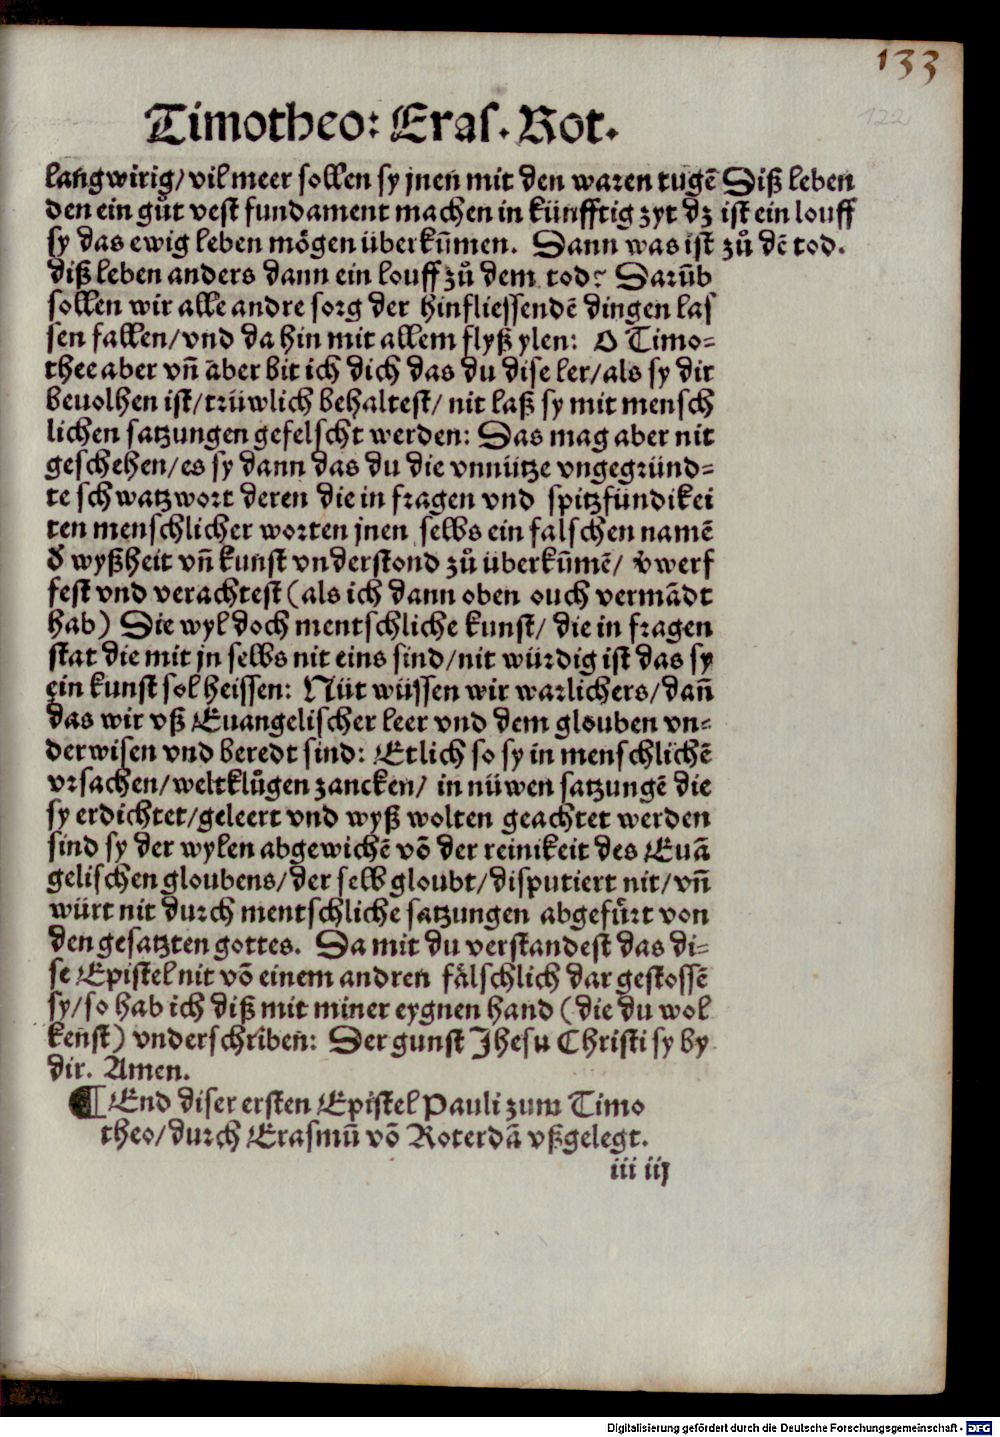 133
122
Timotheo: Eras. Rot.
langwirig/vil meer sollen sy jnen mit den waren tugē
den ein gůt vest fundament machen in künfftig zyt dz
sy das ewig leben mögen überkūmen. Dann was ist
diß leben anders dann ein louff zů dem tod? Darūb
sollen wir alle andre sorg der hinfliessendē dingen las
sen fallen/vnd da hin mit allem flyß ylen: O Timo-
thee aber vn̄ aber bit ich dich das du dise ler/als sy dir
beuolhen ist/trüwlich behaltest/ nit laß sy mit mensch
lichen satzungen gefelscht werden: Das mag aber nit
geschehen/es sy dann das du die vnnütze vngegründ-
te schwatzwort deren die in fragen vnd spitzfündikei
ten menschlicher worten jnen selbs ein falschen namē
d̄ wyßheit vn̄ kunst vnderstond zů überkūmē/ v̄werf
fest vnd verachtest (als ich dann oben ouch vermādt
hab) Die wyl doch mentschliche kunst/ die in fragen
stat die mit jn selbs nit eins sind/nit würdig ist das sy
ein kunst sol heissen: Nüt wüssen wir warlichers/dan̄
das wir vß Euangelischer leer vnd dem glouben vn-
derwisen vnd beredt sind: Etlich so sy in menschlichē
vrsachen/weltklůgen zancken/ in nüwen satzungē die
sy erdichtet/geleert vnd wyß wolten geachtet werden
sind sy der wylen abgewichē vō der reinikeit des Euā
gelischen gloubens/der selb gloubt/disputiert nit/vn̄
würt nit durch mentschliche satzungen abgefürt von
den gesatzten gottes. Da mit du verstandest das di-
se Epistel nit vō einem andren fälschlich dar gestossē
sy/so hab ich diß mit miner eygnen hand (die du wol
kenst) vnderschriben: Der gunst Jhesu Christi sy by
dir. Amen.
Diß leben
ist ein louff
zů dē tod.
¶ End diser ersten Epistel Pauli zum Timo
theo/durch Erasmū vō Roterdā vßgelegt.
iii iij
Digitalisierung gefördert durch die Deutsche Forschungsgemeinschaft - DFG